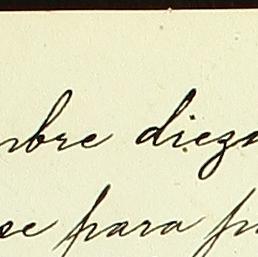 mbre diez
se para p